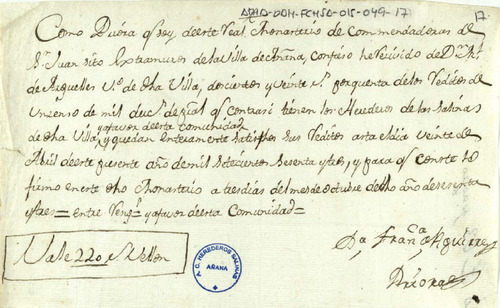 ATHA-DAH-FCHSA-015-049-17
17.
Como Priora q̃ soy, deeste Real Monasterio de Commendadoras de
Sn. Juan sito Extramuros dela Villa de Añana, confieso he Recivido de Dn.
de Arguelles Vº. de dha Villa, doscientos y veinte rs. por quenta delos Redditos de
un zenso de mil ducs. de pral. q̃ contra si tienen los Herederos de las Salinas
de dha Villa, y afavor deesta Comunidad
y quedan enteramente satisfhos sus Redditos asta el dia veinte de
Abril deeste presente año de mil setecientos sesenta ytres, y para q̃ conste lo
firmo eneste dho Monasterio a tres dias del mes de octubre de dho año de sesenta
ytres= entre Rengs. yafavor deesta Comunidad=
Vale 220 rs. Vellon
Da. Franca. Aguirre
Priora
A. C. HEREDEROS SALINAS
AÑANA